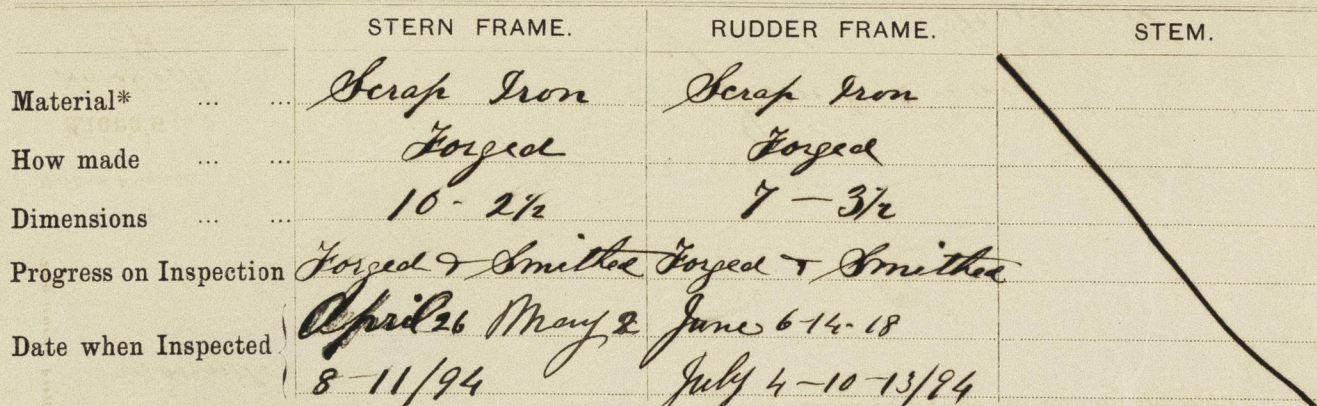 STERN FRAME. RUDDER FRAME. STEM.
Material* ... ... Scrap Iron Scrap Iron
How made ... ... Forged Forged
Dimensions ... ... 10 - 2½ 7 - 3½
Progress on Inspection Forged & Smithed Forged & Smithed
Date when Inspected April 26 May 2 June 6-14-18
8-11/94 July 4-10-13/94